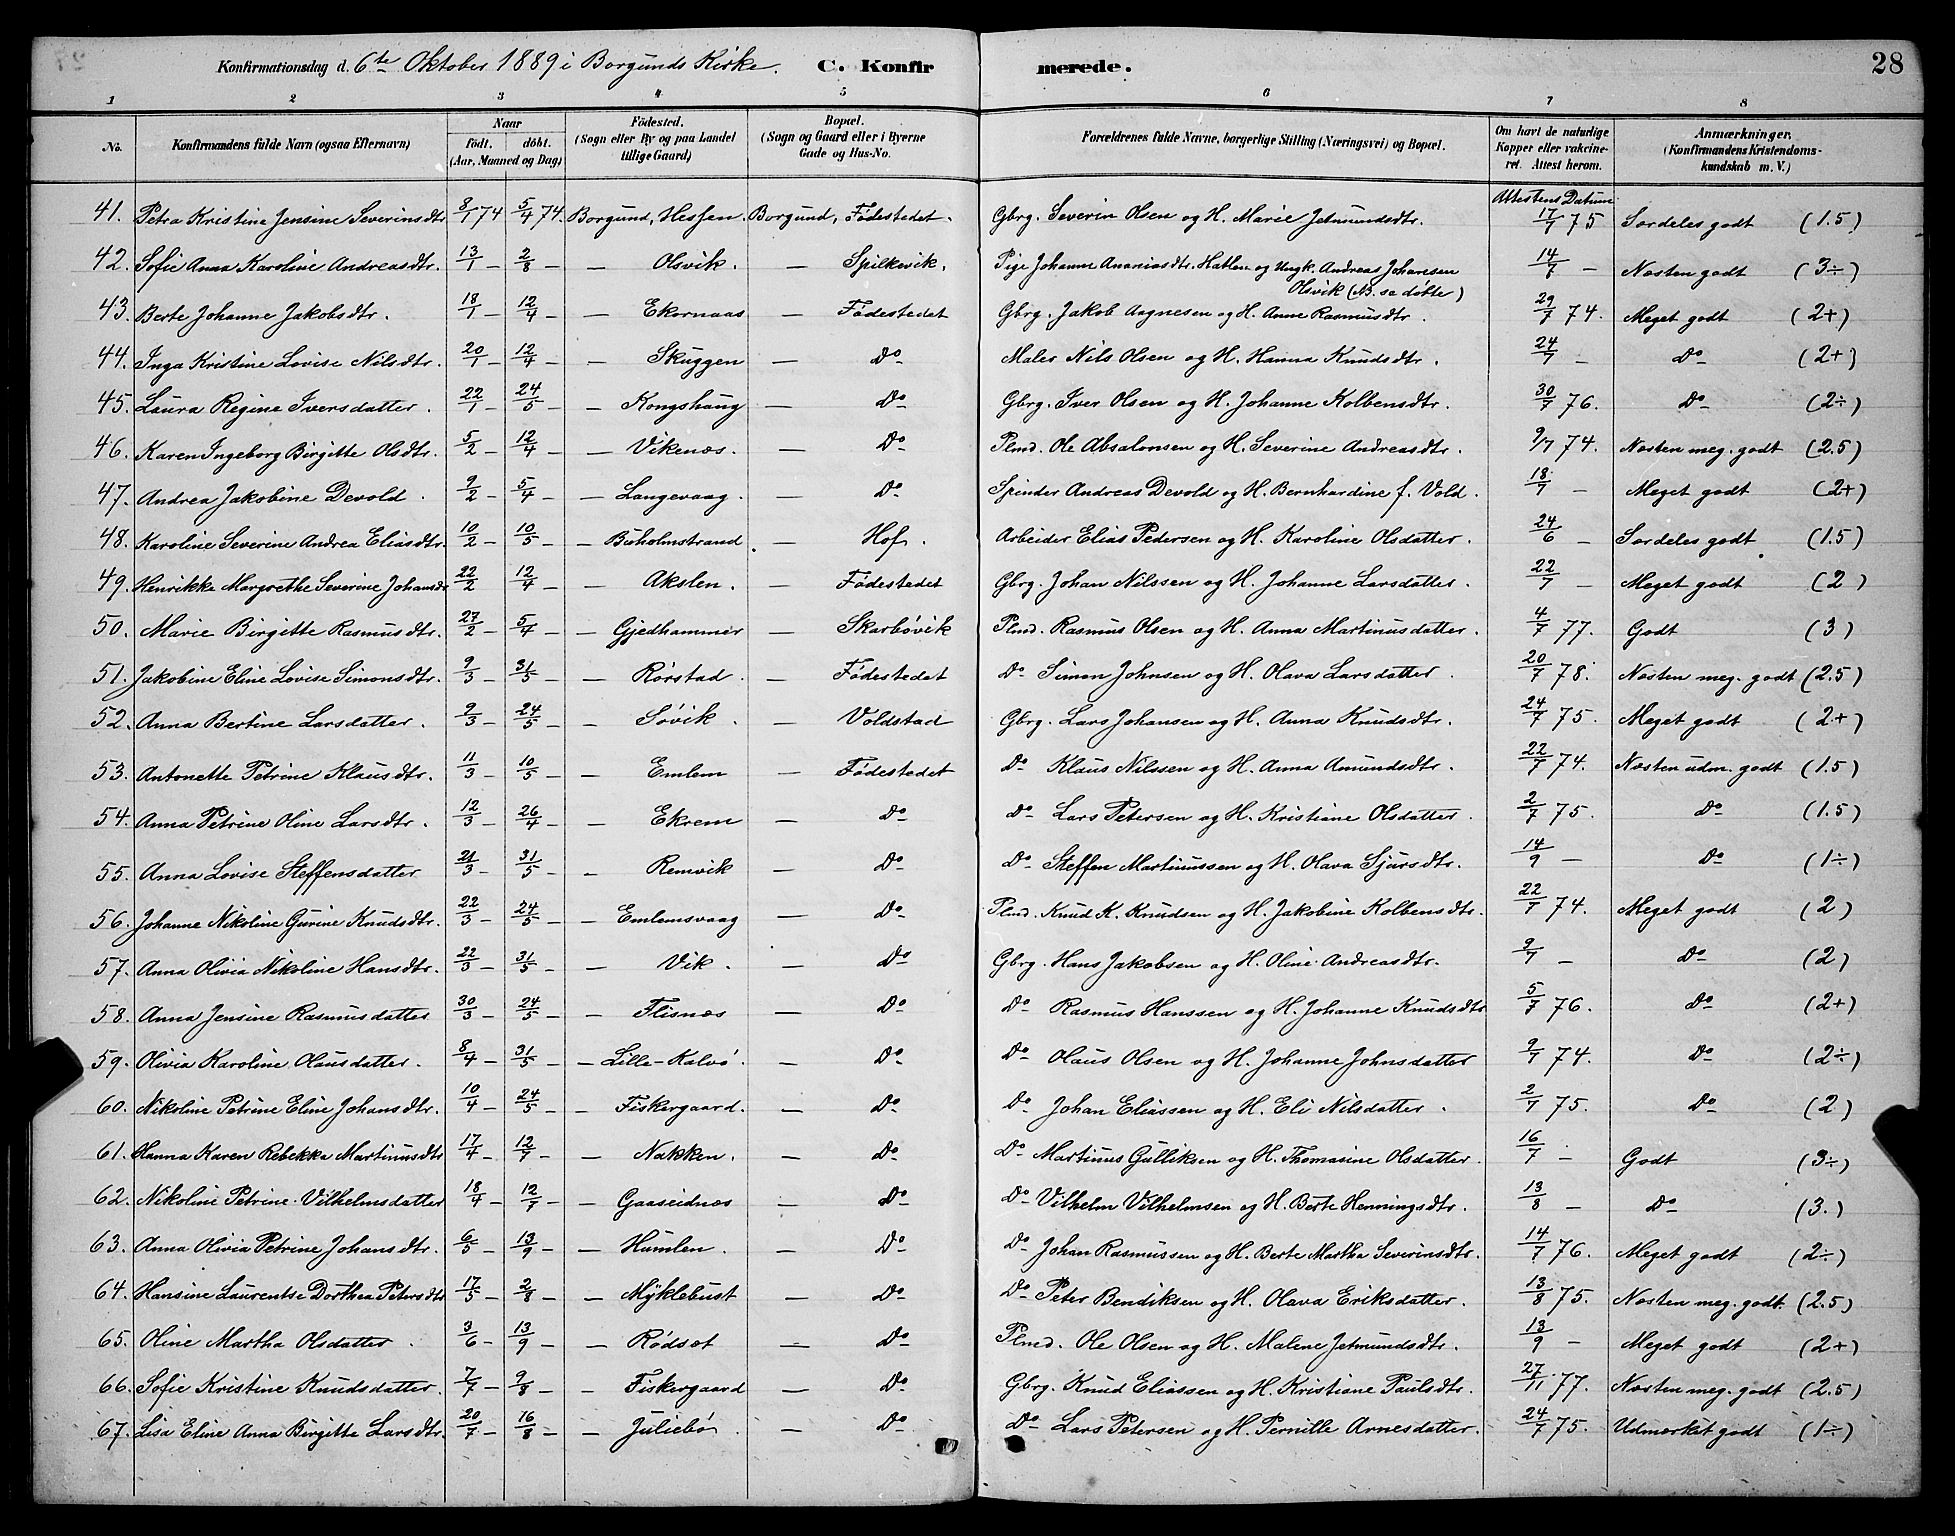 Konfirmationsdag d. 6te Oktober 1889 i Borgunds Kirke. C. Konfirmerede. 28
1 2 3 4 5 6 7 8
No. Konfirmandens fulde Navn (ogsaa Efternavn) Naar Födt. döbt. (Aar, Maaned og Dag) Födested. (Sogn eller By og paa Landet tillige Gaard) Bopæl. (Sogn og Gaard eller i Byerne Gade og Hus-No. Forældrenes fulde Navne, borgerlige Stilling (Næringsvei) og Bopæl. Om havt de naturlige Kopper eller vakcineret. Attest herom. Anmærkninger, (Konfirmandens Kristendomskundskab m. V.)
Attestens Datum
41. Petra Kristine Jensine Severinsdtr. 8/1 74 5/4 74. Borgund, Hessen. Borgund, Födestedet. Gbrg. Severin Olsen og H. Marie Jetmundsdtr. 17/7 75 Særdeles godt (1.5)
42. Sofie Anna Karoline Andreasdtr. 13/1 — 2/8 — — Olsvik. — Spilkevik. Pige Johanne Ananiasdtr. Hatlen og Ungk. Andreas Johansen
Olsvik (NB. se döbte) 14/7 — Næsten godt (3÷)
43. Berte Johanne Jakobsdtr. 18/1 — 12/4 — — Ekornaas — Födestedet Gbrg. Jakob Aagnesen og H. Anne Rasmusdtr. 29/7 74. Meget godt (2+)
44. Inga Kristine Lovise Nilsdtr. 20/1 — 12/4 — — Skuggen — Do Maler Nils Olsen og H. Hanna Knudsdtr. 24/7 — Do (2+)
45. Laura Regine Iversdatter. 22/1 — 24/5 — — Kongshaug — Do Gbrg. Iver Olsen og H. Johanne Kolbensdtr. 30/7 76. Do (2÷)
46. Karen Ingeborg Birgitte Olsdtr. 5/2 — 12/4 — — Vikenæs. — Do Plmd. Ole Absalonsen og H. Severine Andreasdtr. 9/7 74. Næsten meg. godt (2.5)
47. Andrea Jakobine Devold. 9/2 — 5/4 — — Langevaag. — Do Spinder Andreas Devold og H. Bernhardine f. Vold. 18/7 — Meget godt (2+)
48. Karoline Severine Andrea Eliasdtr. 10/2 — 10/5 — — Buholmstrand — Hof. Arbeider Elias Pedersen og H. Karoline Olsdatter. 24/6 — Særdeles godt (1.5)
49. Henrikke Margrethe Severine Johansdtr. 22/2 12/4 — — Akslen. — Födestedet Gbrg. Johan Nilssen og H. Johanne Larsdatter. 22/7 — Meget godt (2)
50. Marie Birgitte Rasmusdtr. 27/2 — 5/4 — — Gjedhammer — Skarbövik Plmd. Rasmus Olsen og H. Anna Martinusdatter. 4/7 77. Godt (3)
51. Jakobine Eline Lovise Simonsdtr. 9/3 — 31/5 — — Rörstad. — Födestedet Do Simon Johnsen og H. Olava Larsdatter. 20/7 78. Næsten meg. godt (2.5)
52. Anna Bertine Larsdatter. 9/3 — 24/5 — — Sövik. — Voldstad Gbrg. Lars Johansen og H. Anna Knudsdtr. 24/7 75. Meget godt (2+)
53. Antonette Petrine Klausdtr. 11/3 — 10/5 — — Emlem — Födestedet Do Klaus Nilssen og H. Anna Amundsdtr. 22/7 74. Næsten udm. godt (1.5)
54. Anna Petrine Oline Larsdtr. 12/3 — 26/4 — — Ekrem — Do Do Lars Petersen og H. Kristiane Olsdatter. 2/7 75. Do (1.5)
55. Anna Lovise Steffensdatter 21/3 — 31/5 — — Remvik — Do Do Steffen Martinussen og H. Olava Sjursdtr. 14/9 — Do (1÷)
56. Johanne Nikoline Gurine Knudsdtr. 22/3 — 24/5 — — Emlemsvaag — Do Plmd. Knud K. Knudsen og H. Jakobine Kolbensdtr. 22/7 74. Meget godt (2)
57. Anna Olivia Nikoline Hansdtr. 22/3 — 31/5 — — Vik. — Do Gbrg. Hans Jakobsen og H. Oline Andreasdtr. 9/7 — Do (2)
58. Anna Jensine Rasmusdatter 30/3 — 24/5 — — Flisnæs — Do Do Rasmus Hanssen og H. Johanne Knudsdtr 5/7 76. Do (2+)
59. Olivia Karoline Olausdatter. 8/4 — 31/5 — — Lille-Kalvö. — Do Do Olaus Olsen og H. Johanne Johnsdatter 9/7 74. Do (2÷)
60. Nikoline Petrine Eline Johansdtr. 10/4 — 24/5 — — Fiskergaard. — Do Do Johan Eliassen og H. Eli Nilsdatter. 2/7 75. Do (2)
61. Hanna Karen Rebekka Martinusdtr 17/4 — 12/7 — — Nakken. — Do Do Martinus Gulliksen og H. Thomasine Olsdatter. 16/7 — Godt (3÷)
62. Nikoline Petrine Vilhelmsdatter 18/4 — 12/7 — — Gaaseidnæs — Do Do Vilhelm Vilhelmsen og H. Berte Henningsdtr. 13/8 — Do (3.)
63. Anna Olivia Petrine Johansdtr. 6/5 — 13/9 — — Humlen. — Do Do Johan Rasmussen og H. Berte Martha Severinsdtr. 14/7 76. Meget godt (2÷)
64. Hansine Laurentse Dorthea Petersdtr 17/5 — 2/8 — — Myklebust — Do Do Peter Bendiksen og H. Olava Eriksdatter. 13/8 75. Næsten meg. godt. (2.5)
65. Oline Martha Olsdatter. 3/6 — 13/9 — — Rödsæt — Do Plmd. Ole Olsen og H. Malene Jetmundsdtr. 13/9 — Meget godt (2+)
66. Sofie Kristine Knudsdatter. 7/7 — 9/8 — — Fiskergaard — Do Gbrg. Knud Eliassen og H. Kristiane Paulsdtr. 27/11 77. Næsten meg. godt (2.5)
67. Lisa Eline Anna Birgitte Larsdtr. 20/7 — 16/8 — — Juliebö. — Do Do Lars Petersen og H. Pernille Arnesdatter. 24/7 75. Udmærket godt (1÷)